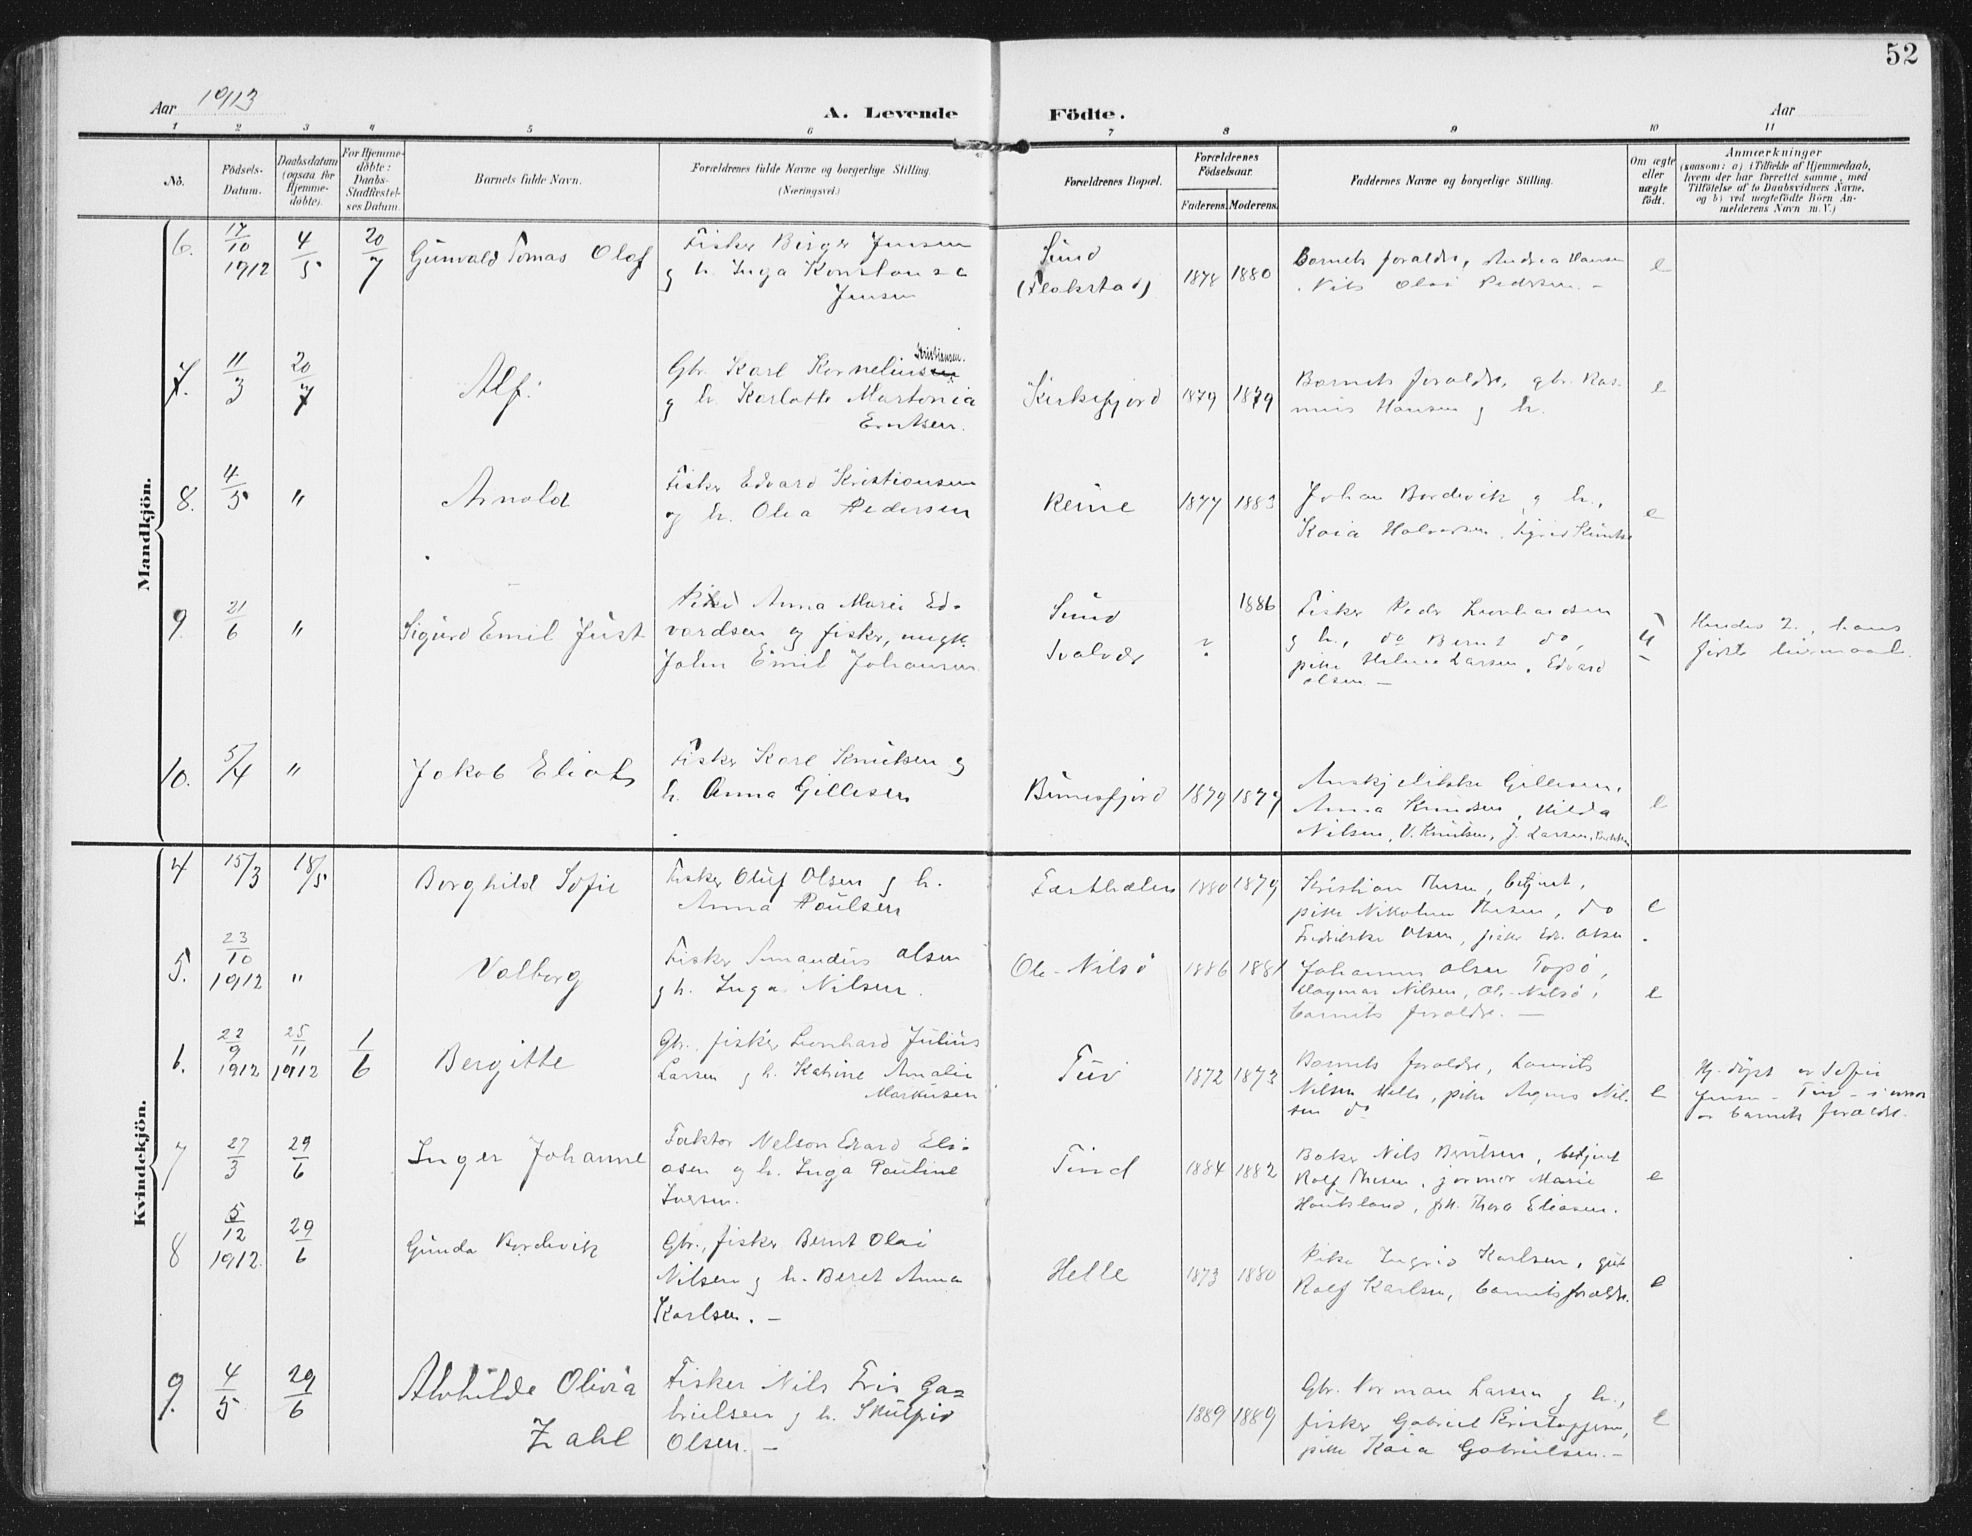 52
Aar 1913
A. Levende Födte.
Aar
1 2 3 4 5 6 7 8 9 10 11
No.
Födsels-Datum.
Daabsdatum (ogsaa for Hjemme-döbte).
For Hjemme-döbte: Daabs-Stadfæstel-ses Datum.
Barnets fulde Navn.
Forældrenes fulde Navne og borgerlige Stilling (Næringsvei.)
Forældrenes Bopæl.
Forældrenes Födselsaar.
Faderens. Moderens.
Faddernes Navne og borgerlige Stilling.
Om ægte eller uægte födt.
Anmærkninger
(saasom: a) i Tilfælde af Hjemmedaab,
hvem der har forrettet samme, med
Tilföielse af to Daabsvidners Navne,
og b) ved uægtefödte Börn An-
melderens Navn m. V.)
Mandkjön.
6. 17/10 1912 4/5 20/7 Gunvald Tomas Olaf
Fisker Birger Jensen
g h. Inga Konstansa
Jensen
Sund
(Flakstad)
1878 1880
Barnets foraldre, Andrea Hansen
Nils Olai Pedersen. –
e
7. 11/3 20/7 Alf.
Kristiansen.
Gbr. Karl Kornelius
g h. Karlotte Martonia
Erntsen.
Kirkefjord 1879 1879
Barnets foraldre, gbr. Ras-
mus Hansen g h.
e
8. 4/5 " Arnold
Fisker Edvard Kristiansen
og h. Olea Pedersen
Reine 1877 1883
Johan Bordevik g h.,
Kaia Halvorsen, Sigrid
e
9. 21/6 " Sigurd Emil Just
Anna Marie Ed-
vardsen og fisker, ungk.
John Emil Johansen
Sund
Svolvær
? 1886
Fisker Peder Leonhardsen
g h., do Bernt do,
pike Helmine Larsen, Edvard
Olsen –
u
Hendes 2., hans
første leiermaal.
10. 5/4 " Jakob Elias
Fisker Karl Knutsen g
h. Anna Gillesen
Bunesfjord 1879 1879
Gillesen,
Anna Knudsen, Hilda
Nilsen, V. Knutsen, J. Larsen,
e
Kvindekjön.
4 15/3 18/5 Borghild Sofie
Fisker Oluf Olsen g h.
Anna Poulsen
1880 1879
Kristian Thesen, betjent,
pike Nikoline Thesen, do
Fredrikke Olsen, fisker Edv. Olsen
e
5. 23/10 1912 " Valborg
Fisker Amandus Olsen
g h. Inga Nilsen.
Ol-Nilsø 1886 1881
Johannes Olsen Topø,
Dagmar Nilsen, Ol-Nilsø,
barnets foraldre. –
e
6. 22/9 1912 25/11 1912 1/6 Bergitte
Gbr. fisker Leonhard Julius
Larsen g h. Katrine Amalie
Markusen
Tuv 1872 1873
Barnets foraldre, Laurits
Nilsen Helle, pike Agnes Nil-
sen do
e
Hj. døpt av Sofie
Jensen – Tuv –
barnets foraldre.
7 27/3 29/6 Inger Johanne
Faktor Nelson Edvard Eli-
asen og h. Inga Pauline
Iversen.
Tind 1884 1882
Baker Nils Berntsen, betjent
Rolf Thesen, jormor Marie
Hauksland, pk. Thora Eliasen.
e
8 5/12 1912 29/6 Gunda Bordevik
Gbr., fisker Bernt Olai
Nilsen g h. Beret Anna
Karlsen. –
Helle 1873 1880
Pike Ingrid Karlsen, gut
Rolf Karlsen, barnets foraldre.
e
9. 4/5 29/6 Alvhilde Olivia
Zahl
Fisker Nils Fris Ga-
brielsen g h.
Olsen. –
1889 1889
Gbr. Norman Larsen g h.,
fisker Gabriel Kristoffersen,
pike Kaia Gabrielsen. –
e